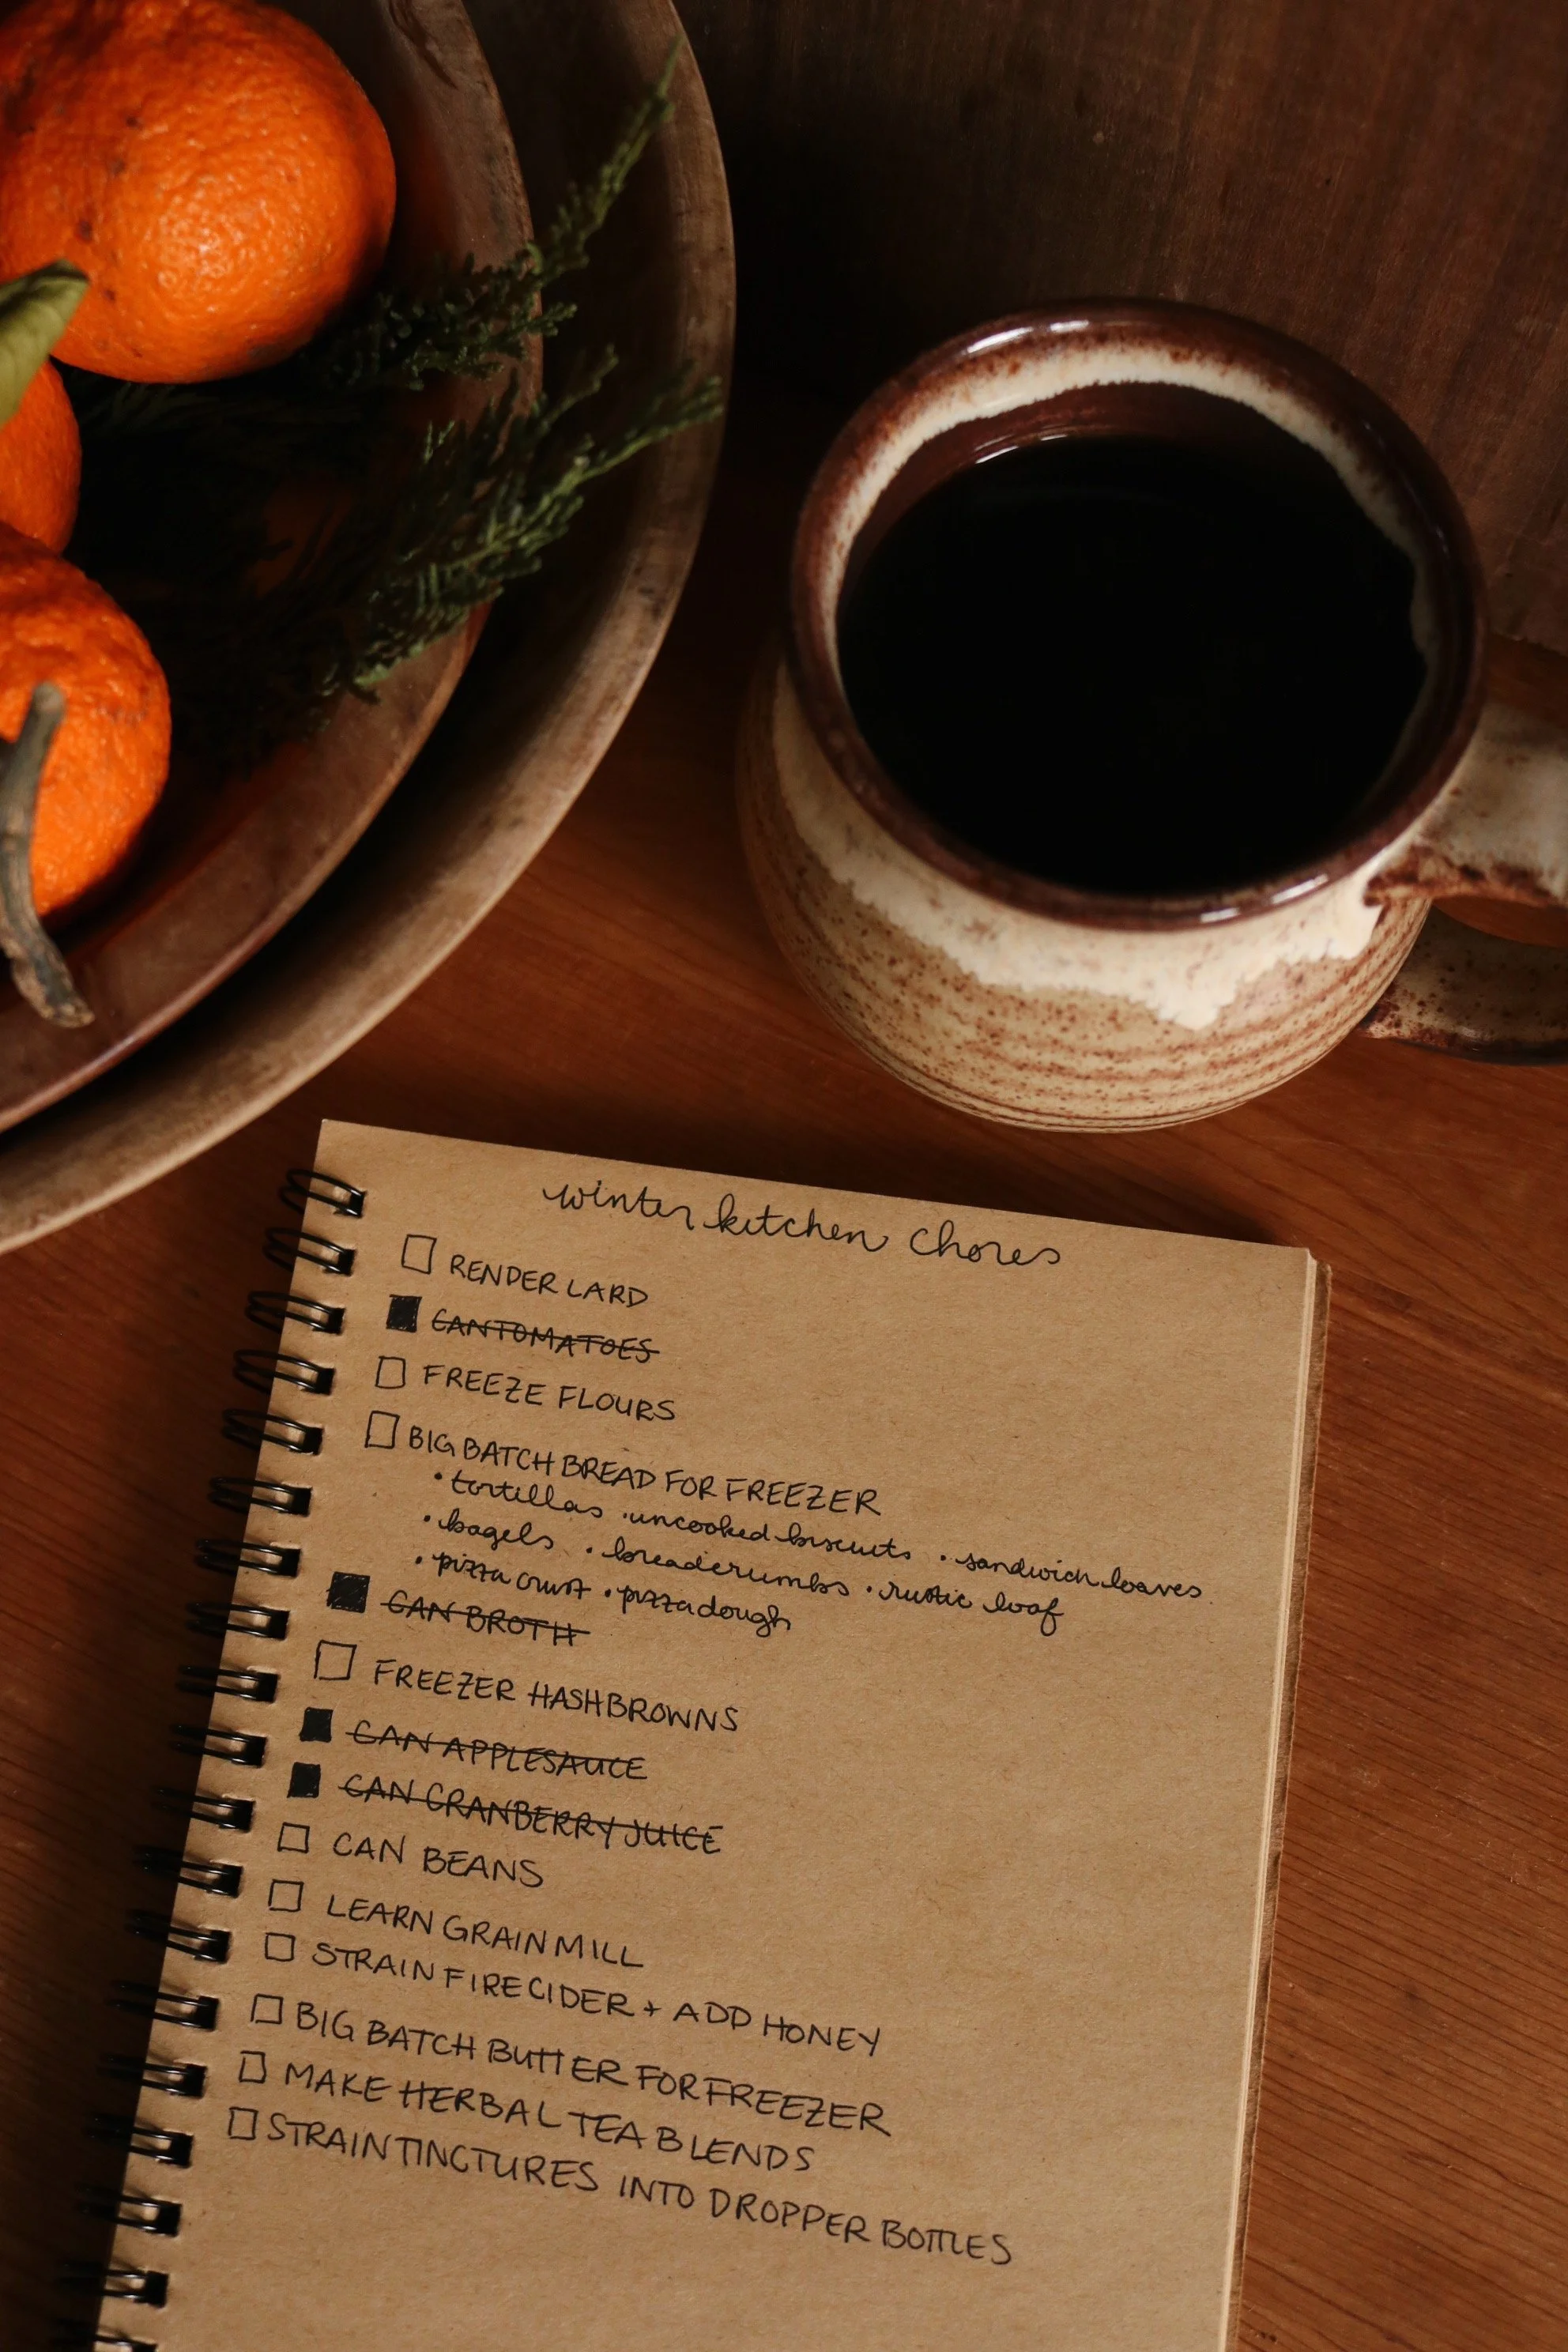 winter kitchen chores
RENDER LARD
CAN TOMATOES
FREEZE FLOURS
BIG BATCH BREAD FOR FREEZER
• tortillas • uncooked biscuits • sandwich loaves
• bagels • breadcrumbs • rustic loaf
• pizza crust • pizza dough
CAN BROTH
FREEZER HASHBROWNS
CAN APPLESAUCE
CAN CRANBERRY JUICE
CAN BEANS
LEARN GRAIN MILL
STRAIN FIRE CIDER + ADD HONEY
BIG BATCH BUTTER FOR FREEZER
MAKE HERBAL TEA BLENDS
STRAIN TINCTURES INTO DROPPER BOTTLES